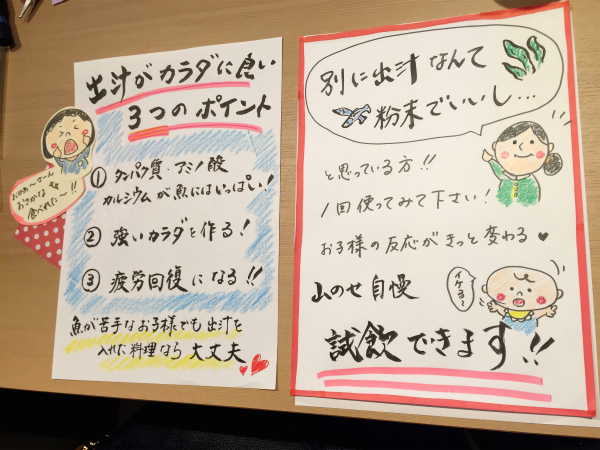 出汁がカラダに良い
3つのポイント
① タンパク質・アミノ酸
カルシウムが魚にはいっぱい!
② 強いカラダを作る!
③ 疲労回復になる!!
魚が苦手なお子様でも出汁を
入れた料理なら大丈夫
おかあ〜さーん
おさかな
食べれた〜!!
別に出汁なんて
粉末でいいし...
と思っている方!!
1回使ってみて下さい!
お子様の反応がきっと変わる♥
イケる〜
山のせ自慢
試飲できます!!